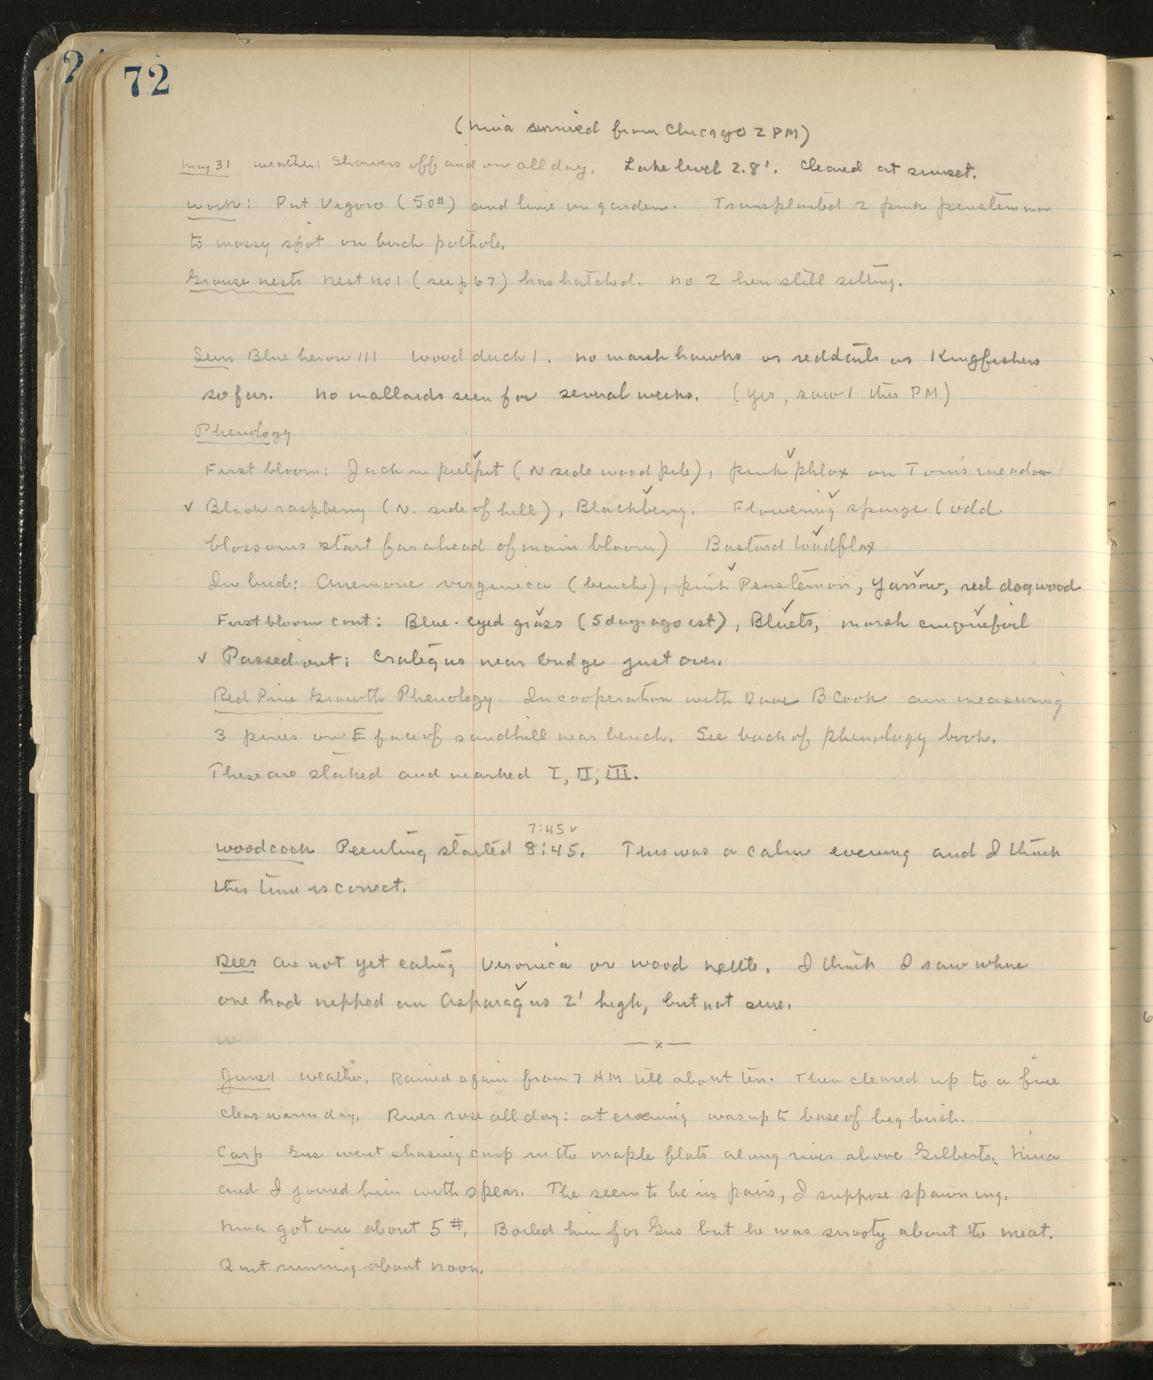 72
(Nina arrived from Chicago 2 PM)
May 31 weather: Showers off and on all day. Lake level 2.8'. Cleared at sunset.
Work: Put Vigoro (50#) and lime on garden. Transplanted 2 pink penstemmon
to mossy spot on birch pothole.
Grouse nests Nest no 1 (see p 67) has hatched. no 2 hen still setting.
Seen Blue heron 111 wood duck 1. no marsh hawks or redtails or Kingfishers
so far. No mallards seen for several weeks. (Yes, saw 1 this PM)
Phenology
First bloom: Jack in pulpit (N side wood pile), pink phlox on Tom's meadow
✓ Black raspberry (N. side of hill), Blackberry. Flowering spurge (odd
blossoms start far ahead of main bloom) Bastard toadflax
In bud: Anemone virginica (bench), pink Penstemon, Yarrow, red dogwood
First bloom cont: Blue-eyed grass (5 days ago est), Bluets, marsh cinquefoil
✓ Passed out: Crategus near bridge just over.
Red Pine Growth Phenology. In cooperation with Dave B Cook am measuring
3 pines on E face of sandhill near bench. See back of phenology book.
These are staked and marked I, II, III.
7:45 ✓
Woodcock Peenting started 8:45. This was a calm evening and I think
this time is correct.
Deer are not yet eating Veronica or wood nettle. I think I saw where
one had nipped an Asparagus 2' high, but not sure.
— x —
June 1 weather. Rained again from 7 AM till about ten. Then cleared up to a fine
clear warm day. River rose all day: at evening was up to base of big birch.
Carp Gus went chasing carp in the maple flats along river above Gilberts. Nina
and I joined him with spear. The seem to be in pairs, I suppose spawning.
Nina got one about 5#. Boiled him for Gus but he was snooty about the meat.
Quit running about noon.